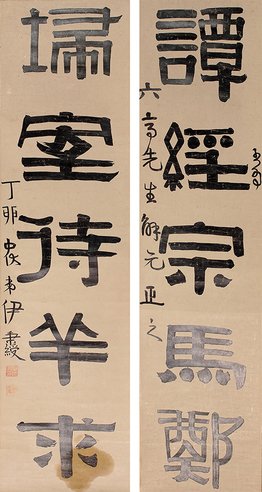 譚經宗馬鄭
六高先生解元正之
埽室待羊求
丁卯
弟伊秉綬